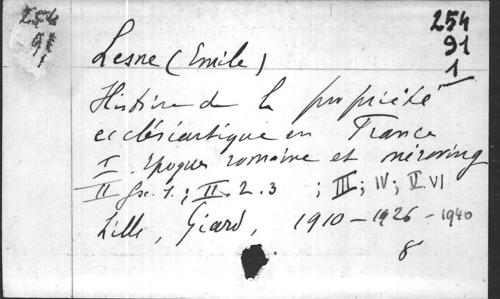 254
91
1
254
91
1
Lesne (Emile)
Histoire de la propriété
ecclésiastique en France
I. Epoques romaine et méroving
II fsc. 1.; II. 2. 3 ; III; IV; V. VI
Lille, Giard, 1910 - 1926 - 1940
8°